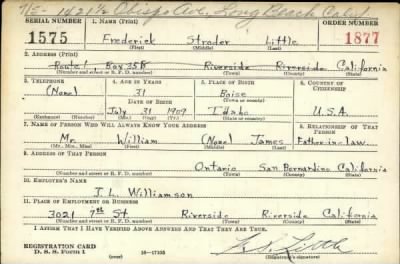 N/E - 1421½ Obispo Ave. Long Beach Calif
SERIAL NUMBER 1. NAME (Print) ORDER NUMBER
1575 Frederick Strader Little 1877
(First) (Middle) (Last)
2. ADDRESS (Print)
Route 1 Box 358 Riverside Riverside California
(Number and street or R. F. D. number) (Town) (County) (State)
3. TELEPHONE 4. AGE IN YEARS 5. PLACE OF BIRTH 6. COUNTRY OF CITIZENSHIP
(None) 31 Boise
DATE OF BIRTH (Town or county)
July 31 1909 Idaho U.S.A.
(Exchange) (Number) (Mo.) (Day) (Yr.) (State or country)
7. NAME OF PERSON WHO WILL ALWAYS KNOW YOUR ADDRESS 8. RELATIONSHIP OF THAT PERSON
Mr. William (None) James Father-in-law
(Mr., Mrs., Miss) (First) (Middle) (Last)
9. ADDRESS OF THAT PERSON
Ontario San Bernardino California
(Number and street or R. F. D. number) (Town) (County) (State)
10. EMPLOYER'S NAME
J. L. Williamson
11. PLACE OF EMPLOYMENT OR BUSINESS
3021 7th St. Riverside Riverside California
(Number and street or R. F. D. number) (Town) (County) (State)
I AFFIRM THAT I HAVE VERIFIED ABOVE ANSWERS AND THAT THEY ARE TRUE.
REGISTRATION CARD
D. S. S. Form 1 (over) 16-17105 (Registrant's signature)